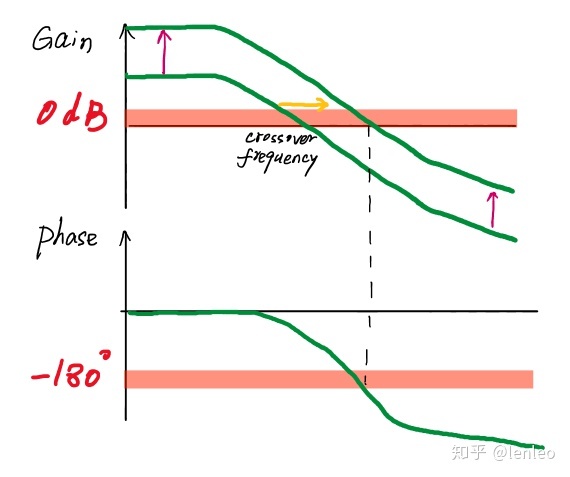 Gain
0dB
crossover
frequency
phase
-180°
知乎 @lenleo